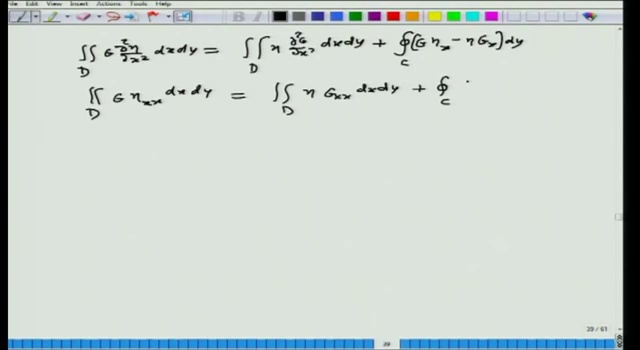 File Edit View Insert Actions Tools Help
∬_D G ∂²η/∂x² dxdy = ∬_D η ∂²G/∂x² dxdy + ∮_C (Gη_x − ηG_x) dy
∬_D G η_xx dxdy = ∬_D η G_xx dxdy + ∮_C
39